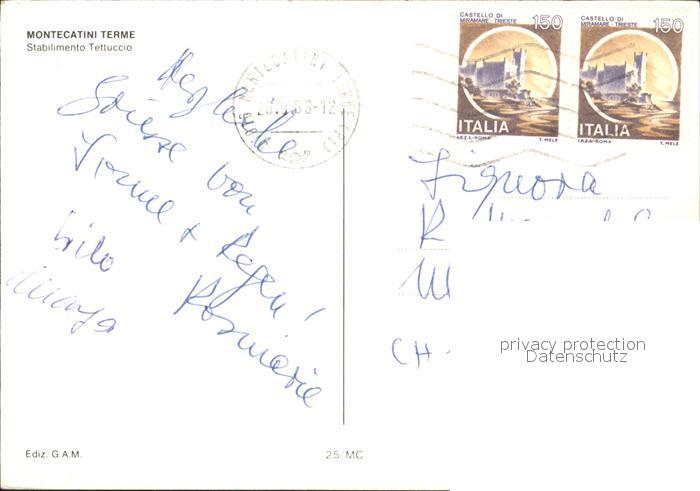 MONTECATINI TERME
Stabilimento Tettuccio
CASTELLO DI
MIRAMARE - TRIESTE 150
ITALIA
I.P.Z.S. - ROMA T. MELE
CASTELLO DI
MIRAMARE - TRIESTE 150
ITALIA
I.P.Z.S. - ROMA T. MELE
MONTECATINI TERME
Herzliche
Grüsse von
Sonne + Regen!
Rosmarie
Signora
R
M
CH-
privacy protection
Datenschutz
Ediz. G.A.M.
25/MC